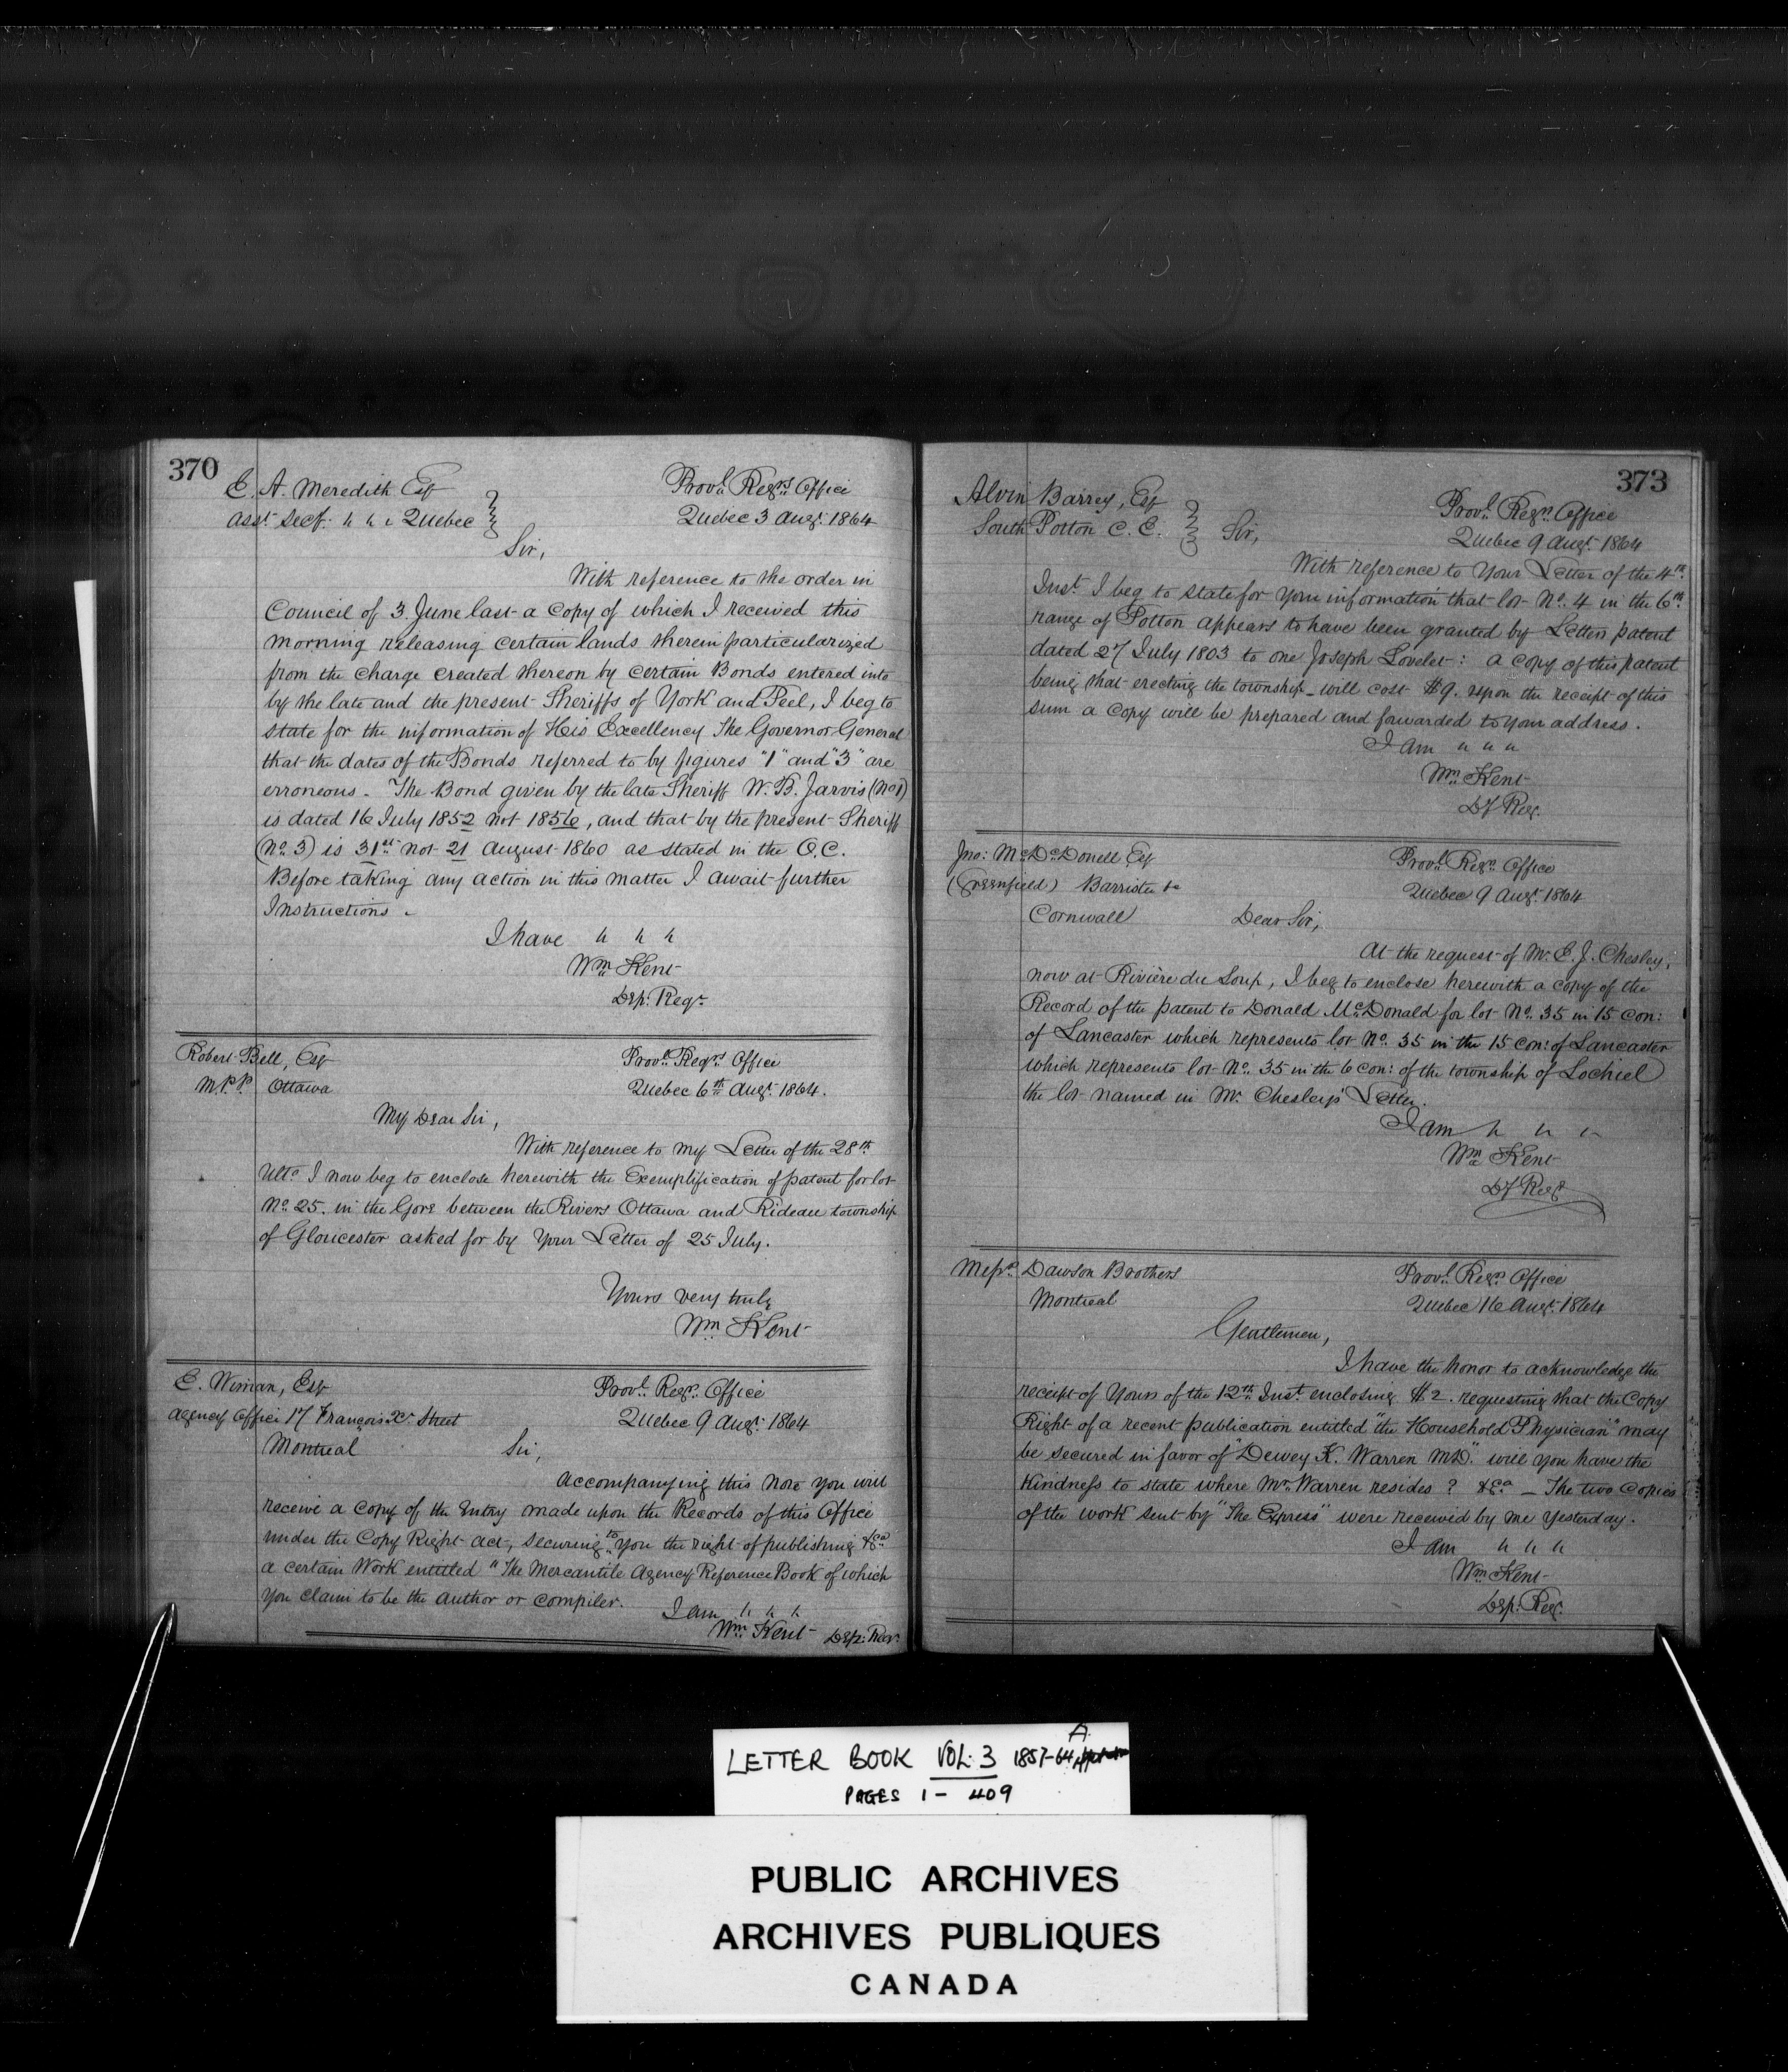 370
E. A. Meredith Esq
Asst. Secy. " " " Quebec
Provl. Regrs Office
Quebec 3 Augt. 1864
Sir,
With reference to the order in
Council of 3 June last a Copy of which I received this
morning releasing certain lands therein particularized
from the charge created thereon by certain Bonds entered into
by the late and the present Sheriffs of York and Peel, I beg to
state for the information of His Excellency The Governor General
that the dates of the Bonds referred to by figures "1" and "3" are
erroneous. The Bond given by the late Sheriff W. B. Jarvis (No 1)
is dated 16 July 1852 not 1856, and that by the present Sheriff
(No. 3) is 31st not 21 August 1860 as stated in the O.C.
Before taking any action in this matter I await further
Instructions.
I have " " "
Wm Kent
Dep: Regr.
Robert Bell, Esq
M.P.P. Ottawa
Provl Regrs Office
Quebec 6th Augt. 1864.
My Dear Sir,
With reference to my Letter of the 28th
Ulto I now beg to enclose herewith the Exemplification of patent for lot
No. 25. in the Gore between the Rivers Ottawa and Rideau township
of Gloucester asked for by Your Letter of 25 July.
Yours very truly
Wm Kent
E. Wiman, Esq
Agency Office 17 François Xr. Street
Montreal
Provl. Regr. Office
Quebec 9 Augt. 1864
Sir,
Accompanying this Note you will
receive a Copy of the Entry made upon the Records of this Office
under the Copy Right act, securing to you the right of publishing &ca
a certain Work entitled "The Mercantile Agency Reference Book of which
You claim to be the author or compiler.
I am " " "
Wm Kent Dep: Regr.
373
Alvin Barrey, Esq
South Potton C. E.
Provl. Regrs. Office
Quebec 9 Augt. 1864
Sir,
With reference to Your Letter of the 4th.
Inst. I beg to state for your information that lot No. 4 in the 6th.
range of Potton appears to have been granted by Letters patent
dated 27 July 1803 to one Joseph Lovelet: a copy of this patent
being that erecting the township will cost $9. upon the receipt of this
sum a copy will be prepared and forwarded to your address.
I am " " "
Wm Kent
Dy Reg.
Jno: McDonell Esq
(Greenfield) Barrister &c
Cornwall
Provl. Regrs Office
Quebec 9 Augt. 1864
Dear Sir,
At the request of Mr. E. J. Chesley,
now at Rivière du Loup, I beg to enclose herewith a copy of the
Record of the patent to Donald McDonald for lot No. 35 in 15 con:
of Lancaster which represents lot No. 35 in the 15 con: of Lancaster
which represents lot No. 35 in the 6 con: of the township of Lochiel
the lot named in Mr. Chesley's Letter.
I am " " "
Wm Kent
Dy Regr
Messrs. Dawson Brothers
Montreal
Provl. Regrs Office
Quebec 16 Augt. 1864
Gentlemen,
I have the honor to acknowledge the
receipt of Yours of the 12th. Inst. enclosing $2. requesting that the Copy
Right of a recent publication entitled "the Household Physician" may
be secured in favor of "Dewey K. Warren M.D." will you have the
Kindness to state where Mr. Warren resides? &ca — The two Copies
of the work sent by "The Express" were received by me yesterday.
I am " " "
Wm Kent
Dep: Reg.
LETTER BOOK VOL. 3 1857-64 A
PAGES 1 - 409
PUBLIC ARCHIVES
ARCHIVES PUBLIQUES
CANADA